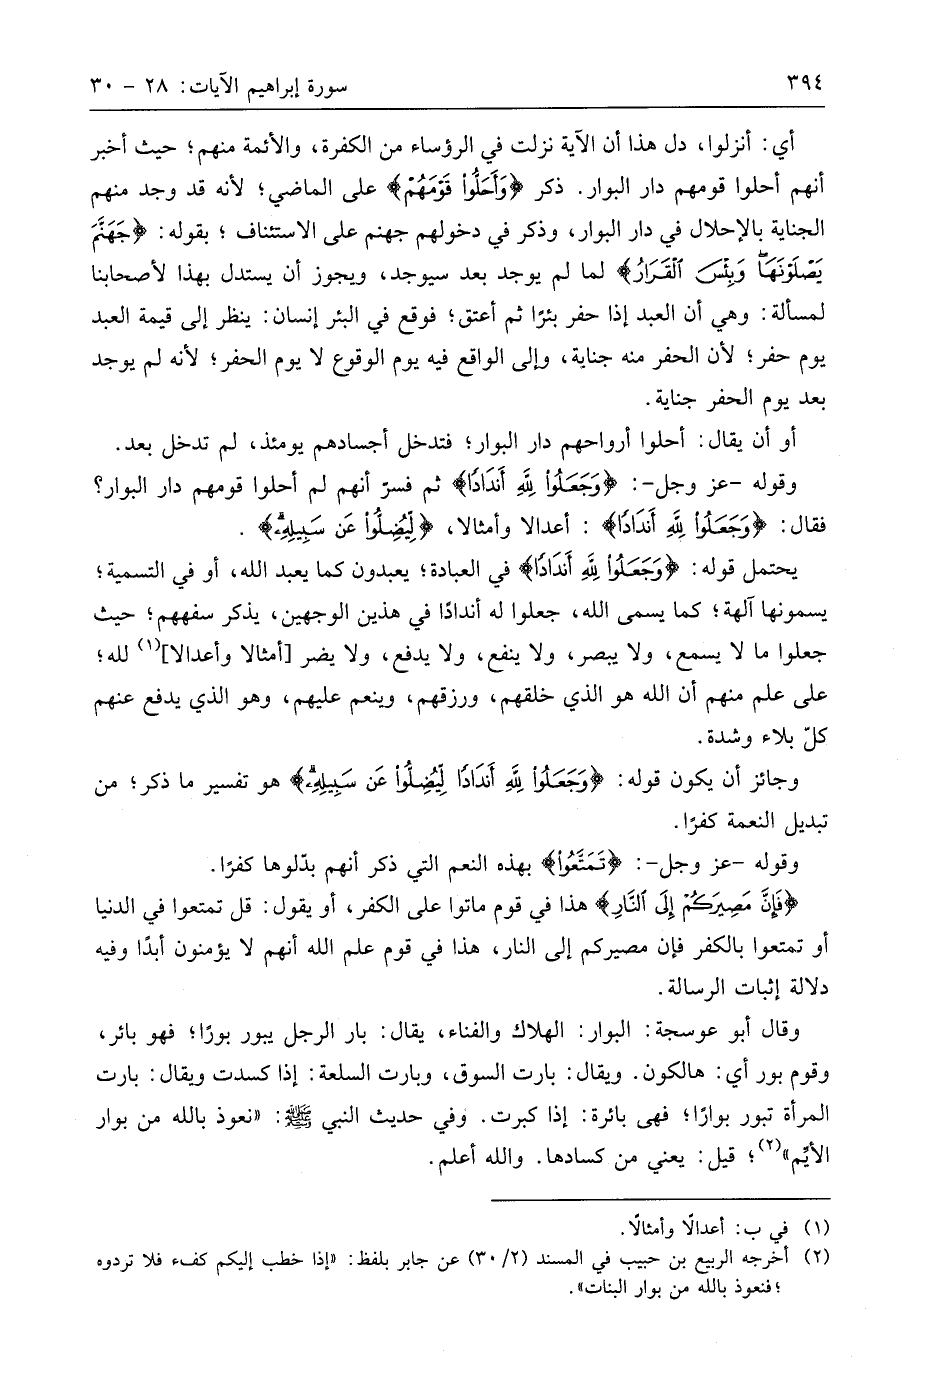 ٣٩٤
سورة إبراهيم الآيات: ٢٨ - ٣٠
أي: أنزلوا، دل هذا أن الآية نزلت في الرؤساء من الكفرة، والأئمة منهم؛ حيث أخبر
أنهم أحلوا قومهم دار البوار. ذكر ﴿وَأَحَلُّواْ قَوۡمَهُمۡ﴾ على الماضي؛ لأنه قد وجد منهم
الجناية بالإحلال في دار البوار، وذكر في دخولهم جهنم على الاستئناف ؛ بقوله: ﴿جَهَنَّمَ
يَصۡلَوۡنَهَاۖ وَبِئۡسَ ٱلۡقَرَارُ﴾ لما لم يوجد بعد سيوجد، ويجوز أن يستدل بهذا لأصحابنا
لمسألة: وهي أن العبد إذا حفر بئرًا ثم أعتق؛ فوقع في البئر إنسان: ينظر إلى قيمة العبد
يوم حفر؛ لأن الحفر منه جناية، وإلى الواقع فيه يوم الوقوع لا يوم الحفر؛ لأنه لم يوجد
بعد يوم الحفر جناية.
أو أن يقال: أحلوا أرواحهم دار البوار؛ فتدخل أجسادهم يومئذ، لم تدخل بعد.
وقوله -عز وجل-: ﴿وَجَعَلُواْ لِلَّهِ أَندَادًا﴾ ثم فسرّ أنهم لم أحلوا قومهم دار البوار؟
فقال: ﴿وَجَعَلُواْ لِلَّهِ أَندَادًا﴾ : أعدالا وأمثالا، ﴿لِّيُضِلُّواْ عَن سَبِيلِهِۦۗ﴾ .
يحتمل قوله: ﴿وَجَعَلُواْ لِلَّهِ أَندَادًا﴾ في العبادة؛ يعبدون كما يعبد الله، أو في التسمية؛
يسمونها آلهة؛ كما يسمى الله، جعلوا له أندادًا في هذين الوجهين، يذكر سفههم؛ حيث
جعلوا ما لا يسمع، ولا يبصر، ولا ينفع، ولا يدفع، ولا يضر [أمثالا وأعدالا](١) لله؛
على علم منهم أن الله هو الذي خلقهم، ورزقهم، وينعم عليهم، وهو الذي يدفع عنهم
كلّ بلاء وشدة.
وجائز أن يكون قوله: ﴿وَجَعَلُواْ لِلَّهِ أَندَادًا لِّيُضِلُّواْ عَن سَبِيلِهِۦۗ﴾ هو تفسير ما ذكر؛ من
تبديل النعمة كفرًا.
وقوله -عز وجل-: ﴿تَمَتَّعُواْ﴾ بهذه النعم التي ذكر أنهم بدّلوها كفرًا.
﴿فَإِنَّ مَصِيرَكُمۡ إِلَى ٱلنَّارِ﴾ هذا في قوم ماتوا على الكفر، أو يقول: قل تمتعوا في الدنيا
أو تمتعوا بالكفر فإن مصيركم إلى النار، هذا في قوم علم الله أنهم لا يؤمنون أبدًا وفيه
دلالة إثبات الرسالة.
وقال أبو عوسجة: البوار: الهلاك والفناء، يقال: بار الرجل يبور بورًا؛ فهو بائر،
وقوم بور أي: هالكون. ويقال: بارت السوق، وبارت السلعة: إذا كسدت ويقال: بارت
المرأة تبور بوارًا؛ فهى بائرة: إذا كبرت. وفي حديث النبي ﷺ: «نعوذ بالله من بوار
الأيِّم»(٢)؛ قيل: يعني من كسادها. والله أعلم.
(١) في ب: أعدالًا وأمثالًا.
(٢) أخرجه الربيع بن حبيب في المسند (٣٠/٢) عن جابر بلفظ: «إذا خطب إليكم كفء فلا تردوه
؛فنعوذ بالله من بوار البنات».